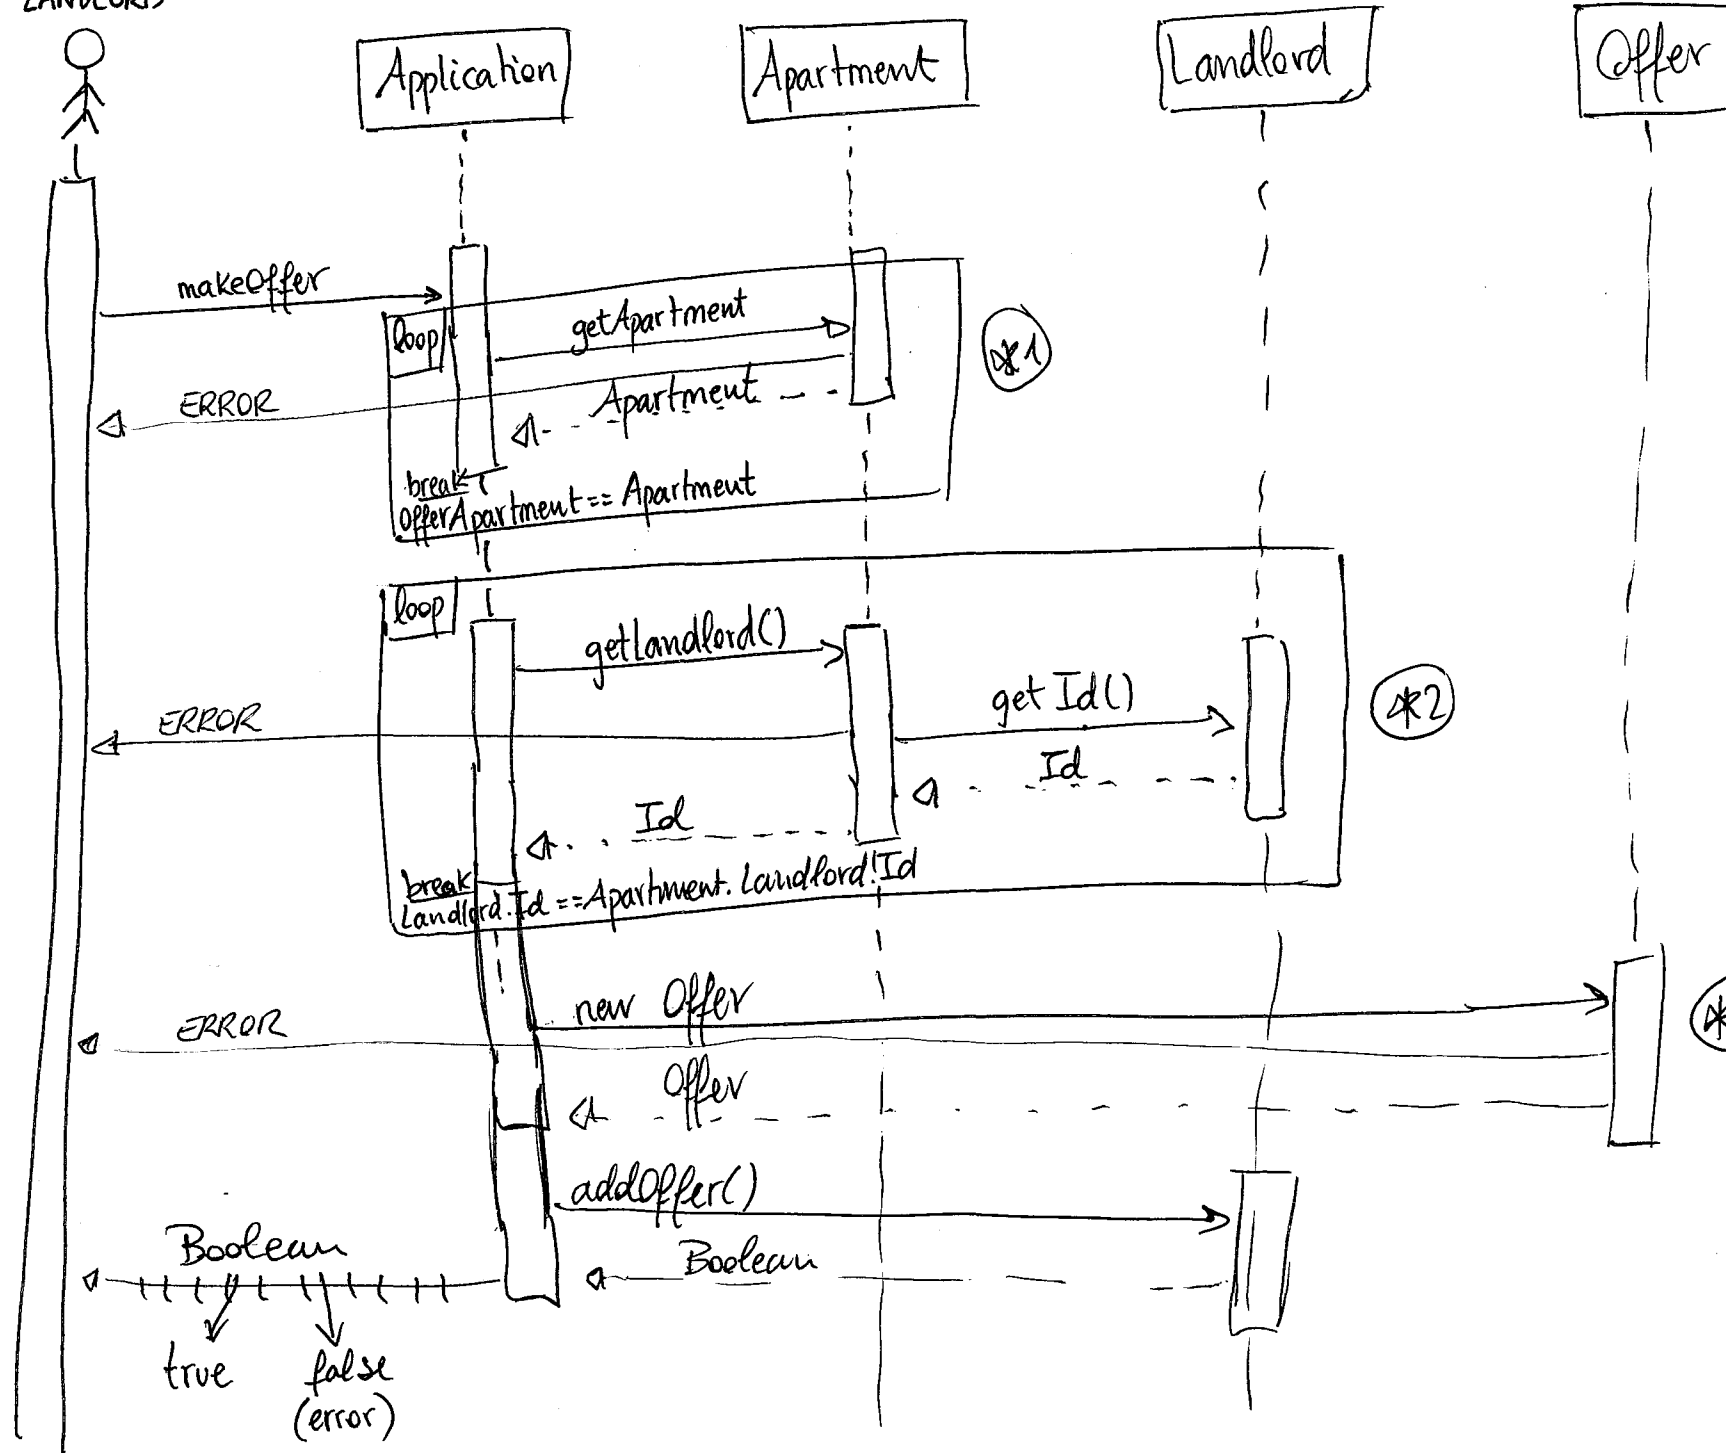 Application
Apartment
Landlord
Offer
makeOffer
loop
getApartment
*1
ERROR
Apartment
break
OfferApartment == Apartment
loop
getLandlord()
getId()
*2
ERROR
Id
Id
break
Landlord.Id == Apartment.Landlord.Id
new Offer
ERROR
Offer
addOffer()
Boolean
Boolean
true
false
(error)